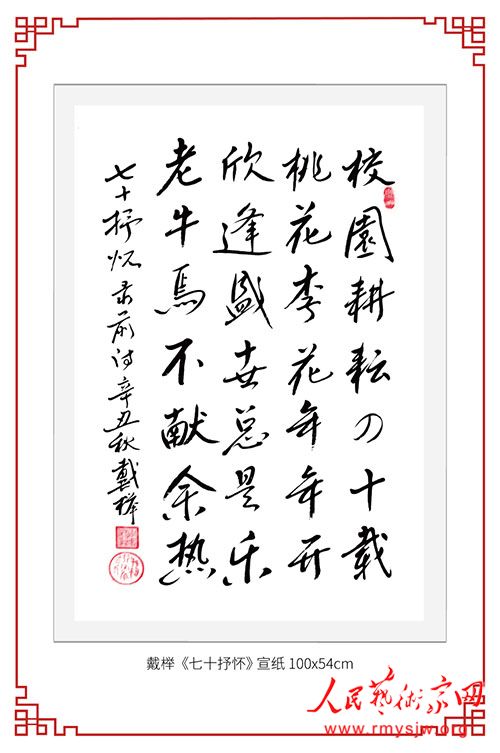 校園耕耘四十載
桃花李花年年开
欣逢盛世总是乐
老牛焉不献余热
七十抒怀录前诗辛丑秋戴榉
戴榉《七十抒怀》宣纸 100x54cm
人民藝術家网
www.rmysjw.org